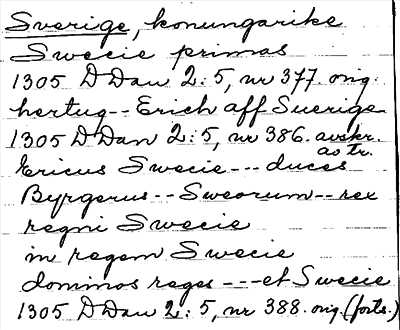 Sverige, konungarike
Swecie primas
1305 DDan 2:5, nr 377. orig.
hertug -- Erich aff Suerige
1305 DDan 2:5, nr 386. avskr.
as tr.
Ericus Swecie --- duces
Byrgerus -- Sweorum -- rex
regni Swecie
in regem Swecie
dominos reges --- et Swecie
1305 DDan 2:5, nr 388. orig. (forts.)